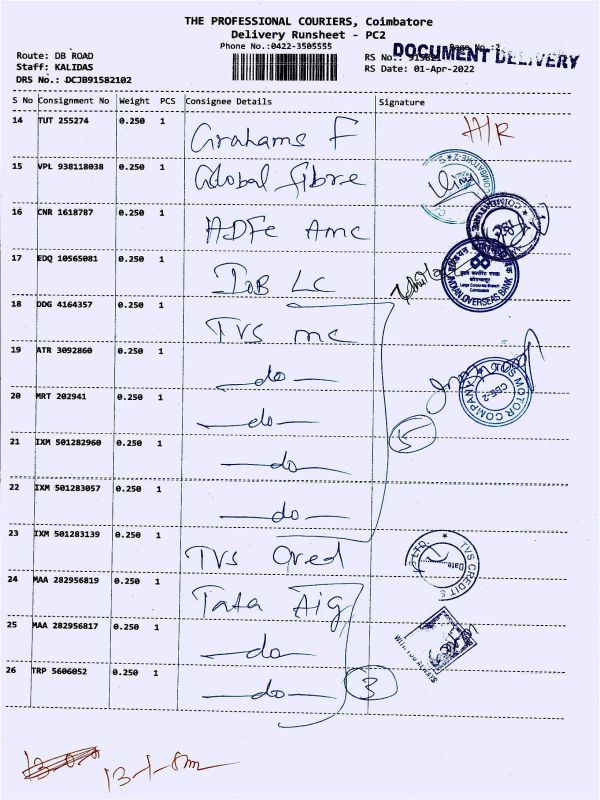 THE PROFESSIONAL COURIERS, Coimbatore
Delivery Runsheet - PC2
Phone No.:0422-3505555
Page No.:2
DOCUMENT DELIVERY
Route: DB ROAD
Staff: KALIDAS
DRS No.: DCJB91582102
RS No.:
RS Date: 01-Apr-2022
S No Consignment No Weight PCS Consignee Details Signature
14 TUT 255274 0.250 1 Grahams F H/R
15 VPL 938118038 0.250 1 Global fibre
16 CNR 1618787 0.250 1 HDFc Amc
17 EDQ 10565081 0.250 1 IoB LC
INDIAN OVERSEAS BANK
18 DDG 4164357 0.250 1 TVS mc
19 ATR 3092860 0.250 1 -do-
20 MRT 202941 0.250 1 -do-
TVS MOTOR COMPANY
CBE-2
21 IXM 501282960 0.250 1 -do-
5
22 IXM 501283057 0.250 1 -do-
23 IXM 501283139 0.250 1 TVS Cred
TVS CREDIT S
Date
24 MAA 282956819 0.250 1 Tata Aig
25 MAA 282956817 0.250 1 -do-
WITH YOU ALWAYS
26 TRP 5606052 0.250 1 -do- 3